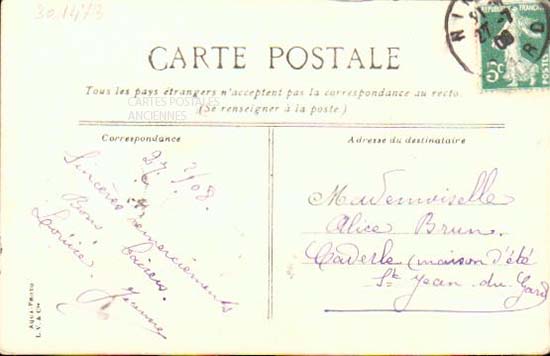 301473
NIM
27-7
08
ARD
RÉPUBLIQUE FRANÇAISE
5c
POSTES
CARTE POSTALE
Tous les pays étrangers n'acceptent pas la correspondance au recto.
(Se renseigner à la poste.)
CARTES POSTALES
ANCIENNES
Correspondance
Adresse du destinataire
27/7/08.
Sincères remerciements
Bons baisers.
Jeanne
Mademoiselle
Alice Brun
Caderle (maison d'été
St Jean-du-Gard
Aqua-Photo
L. V. & Cie